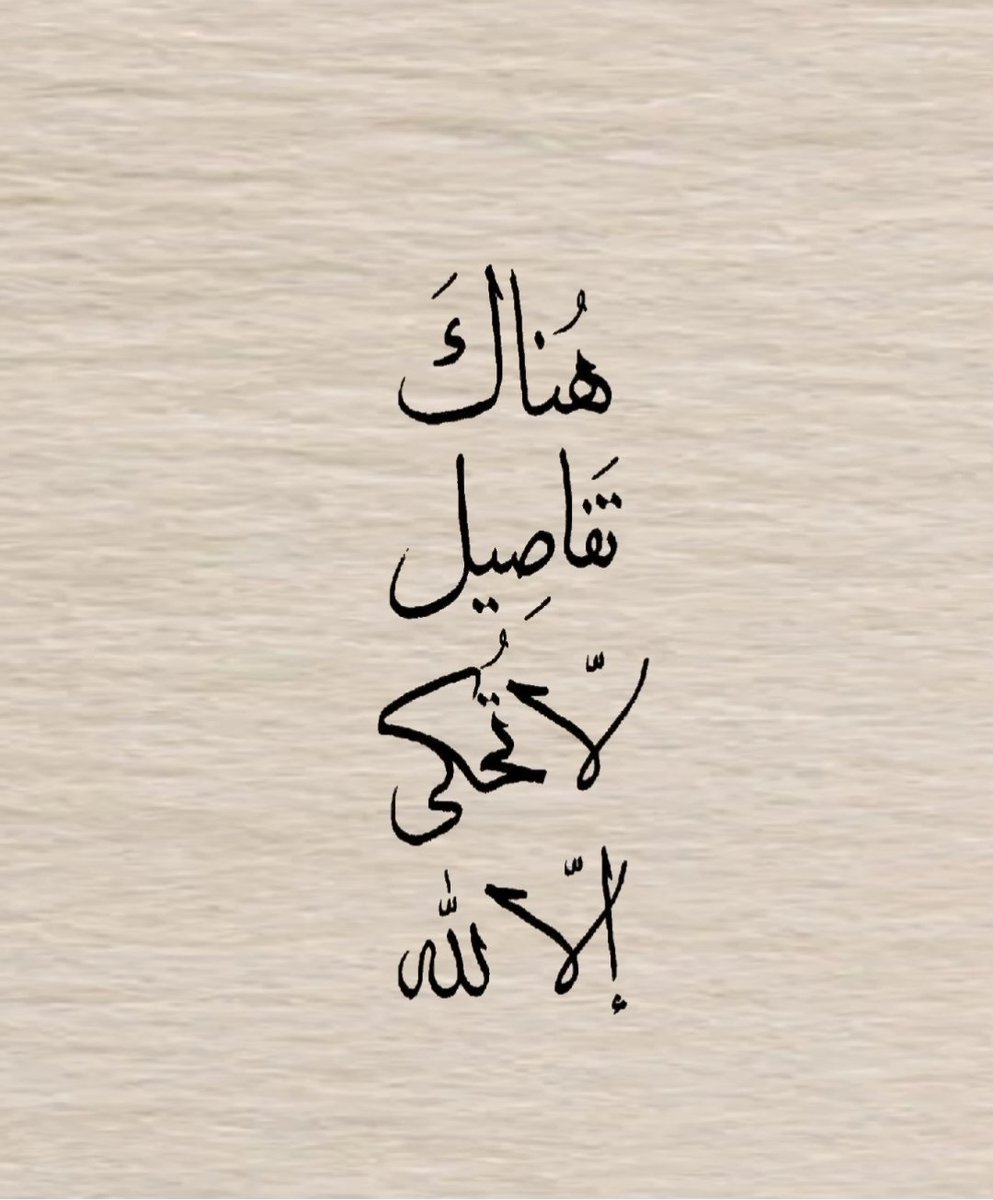 هُناكَ
تَفاصِيل
لاّ تُحكى
إلاّ لله